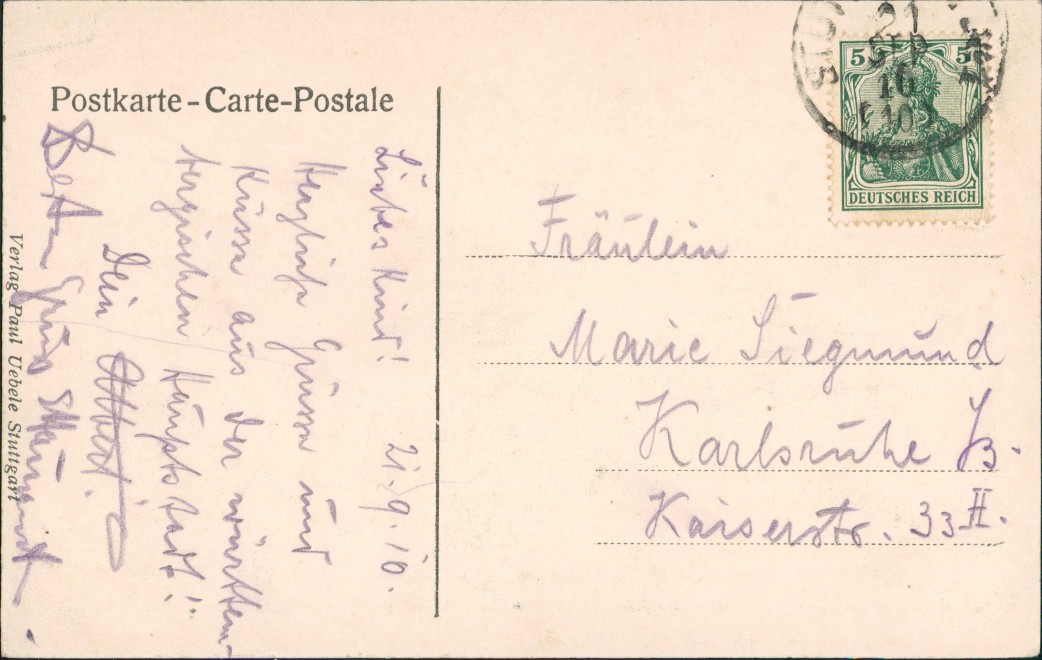 Postkarte - Carte-Postale
Liebes Kind! 21.9.10.
Herzliche Grüsse und
Küsse aus der württem-
bergischen Hauptstadt!
Dein Albert.
Gruss
Verlag Paul Uebele Stuttgart
21
SEP
10
5 5
DEUTSCHES REICH
Fräulein
Marie Siegmund
Karlsruhe /B.
Kaiserstr. 33 II.